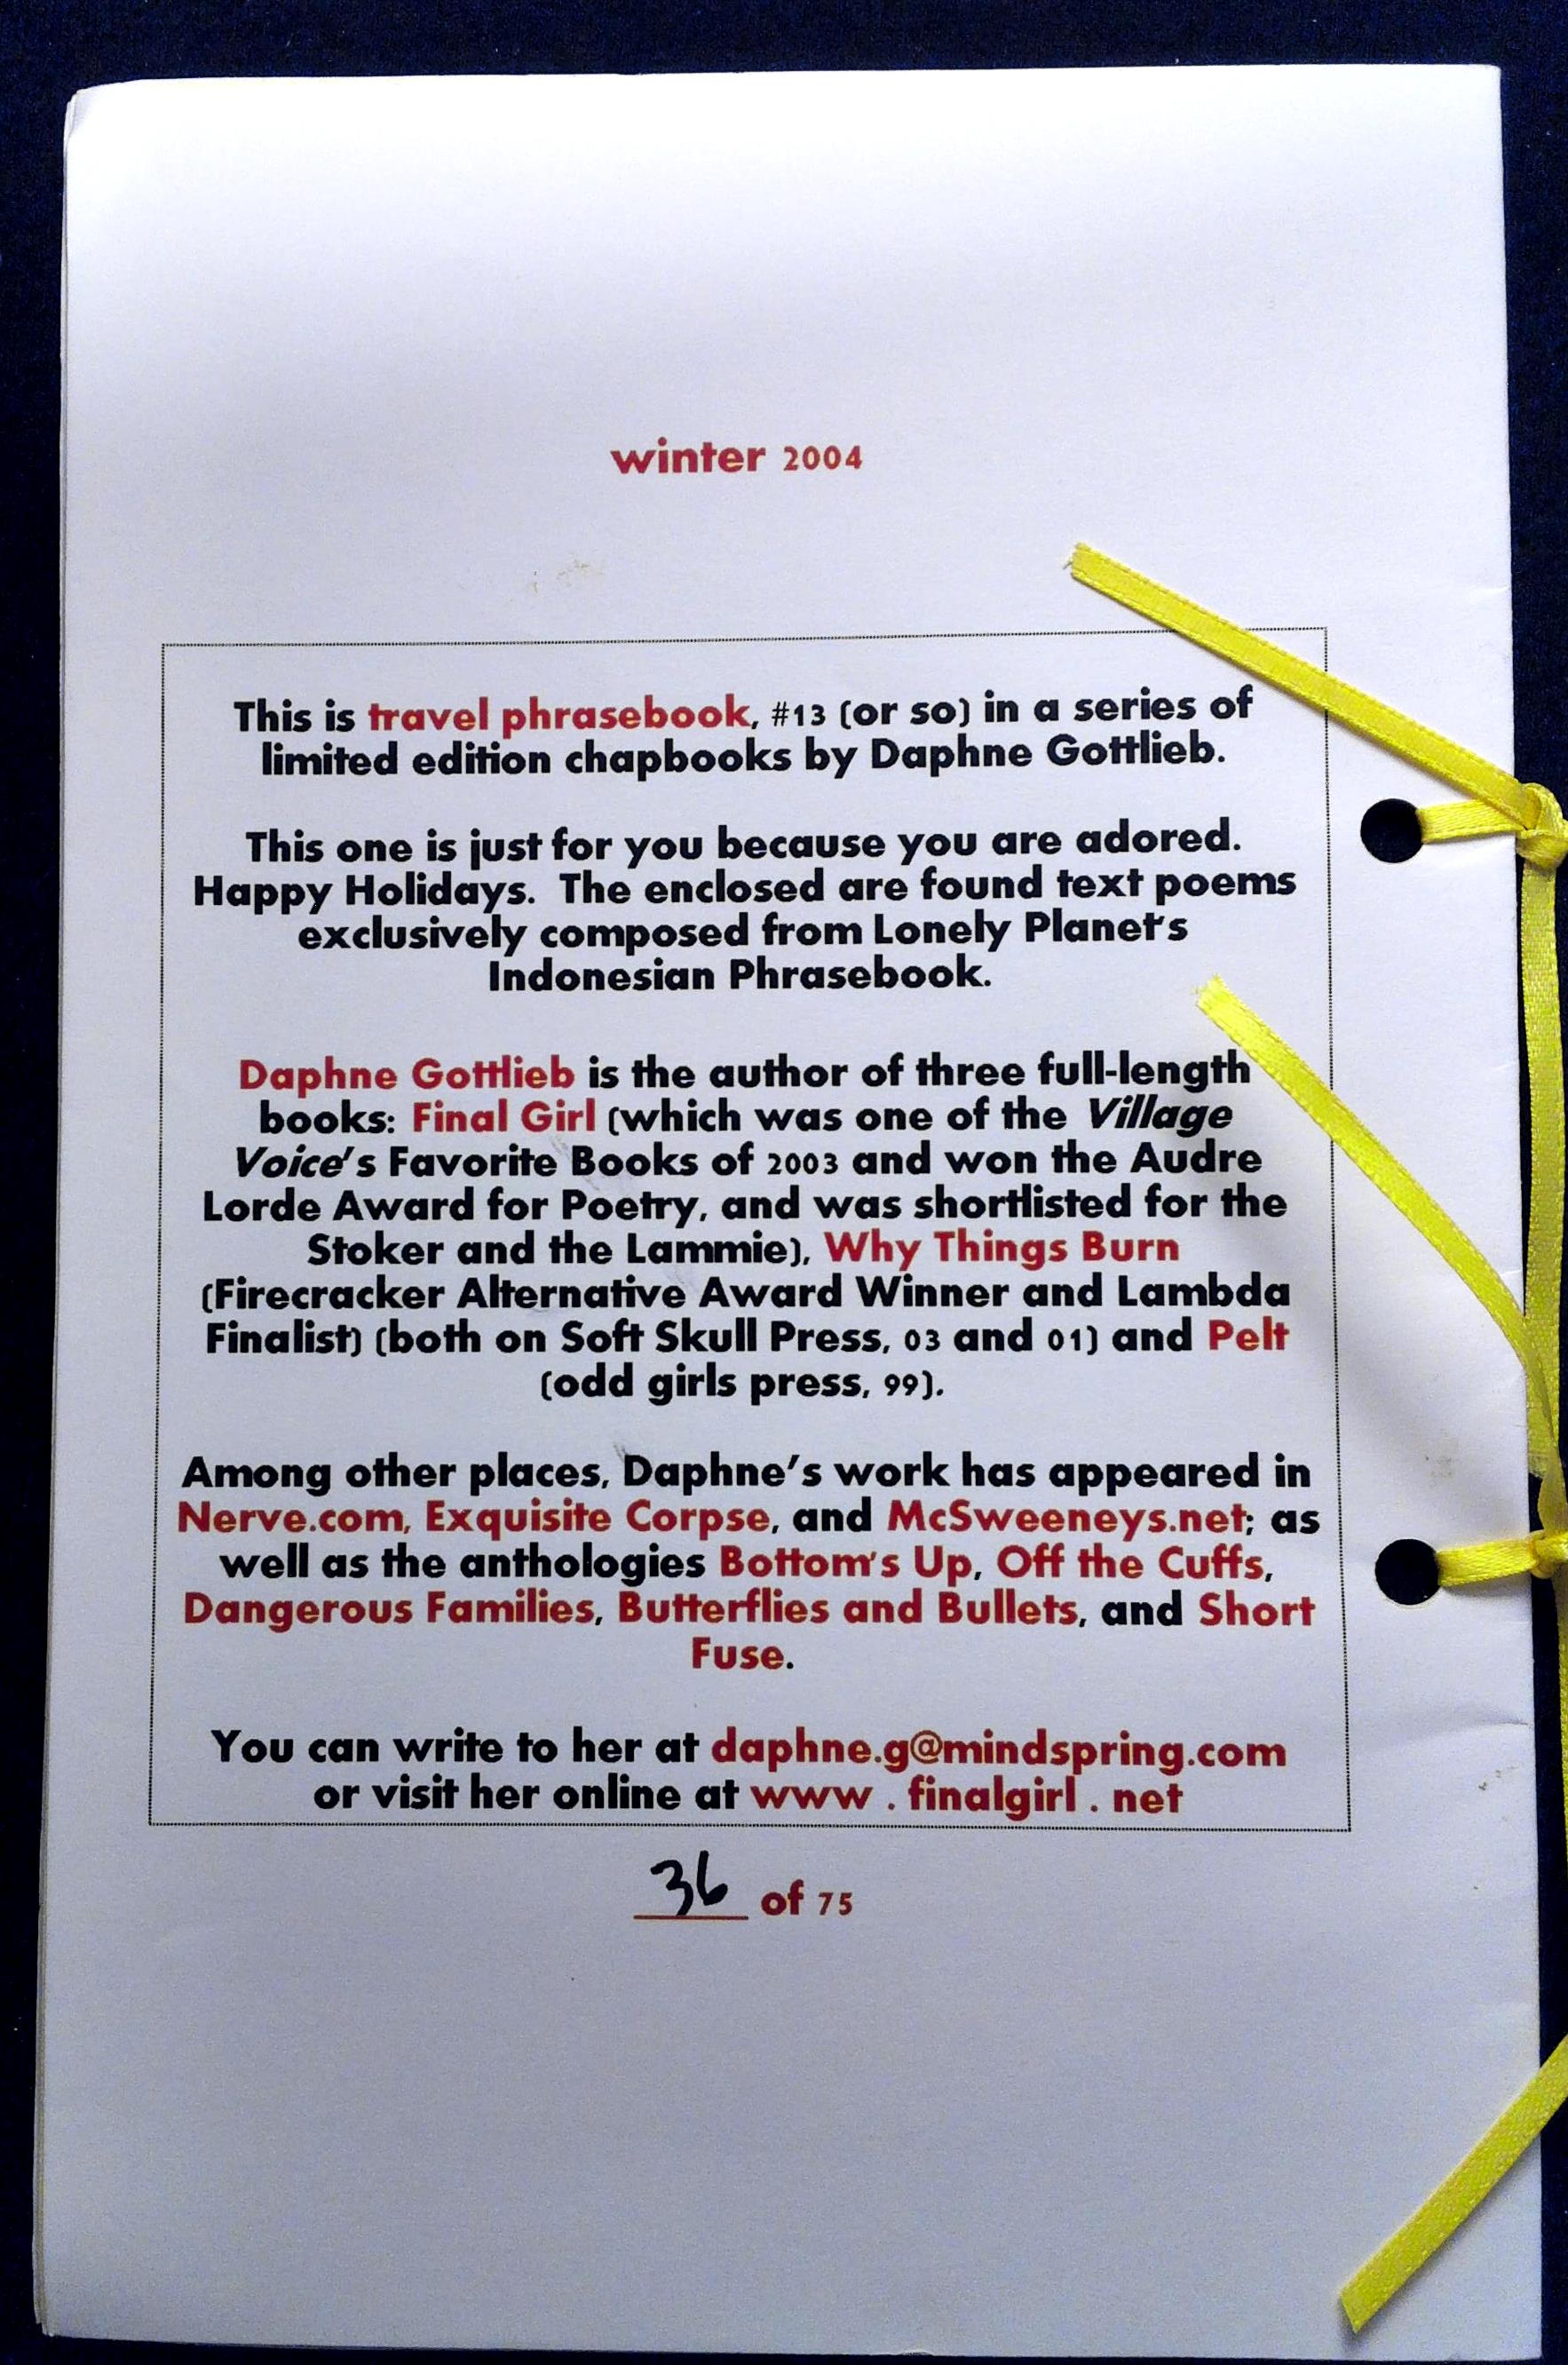 winter 2004
This is travel phrasebook, #13 (or so) in a series of
limited edition chapbooks by Daphne Gottlieb.
This one is just for you because you are adored.
Happy Holidays. The enclosed are found text poems
exclusively composed from Lonely Planet's
Indonesian Phrasebook.
Daphne Gottlieb is the author of three full-length
books: Final Girl (which was one of the Village
Voice's Favorite Books of 2003 and won the Audre
Lorde Award for Poetry, and was shortlisted for the
Stoker and the Lammie), Why Things Burn
(Firecracker Alternative Award Winner and Lambda
Finalist) (both on Soft Skull Press, 03 and 01) and Pelt
(odd girls press, 99).
Among other places, Daphne's work has appeared in
Nerve.com, Exquisite Corpse, and McSweeneys.net; as
well as the anthologies Bottom's Up, Off the Cuffs,
Dangerous Families, Butterflies and Bullets, and Short
Fuse.
You can write to her at daphne.g@mindspring.com
or visit her online at www . finalgirl . net
36 of 75